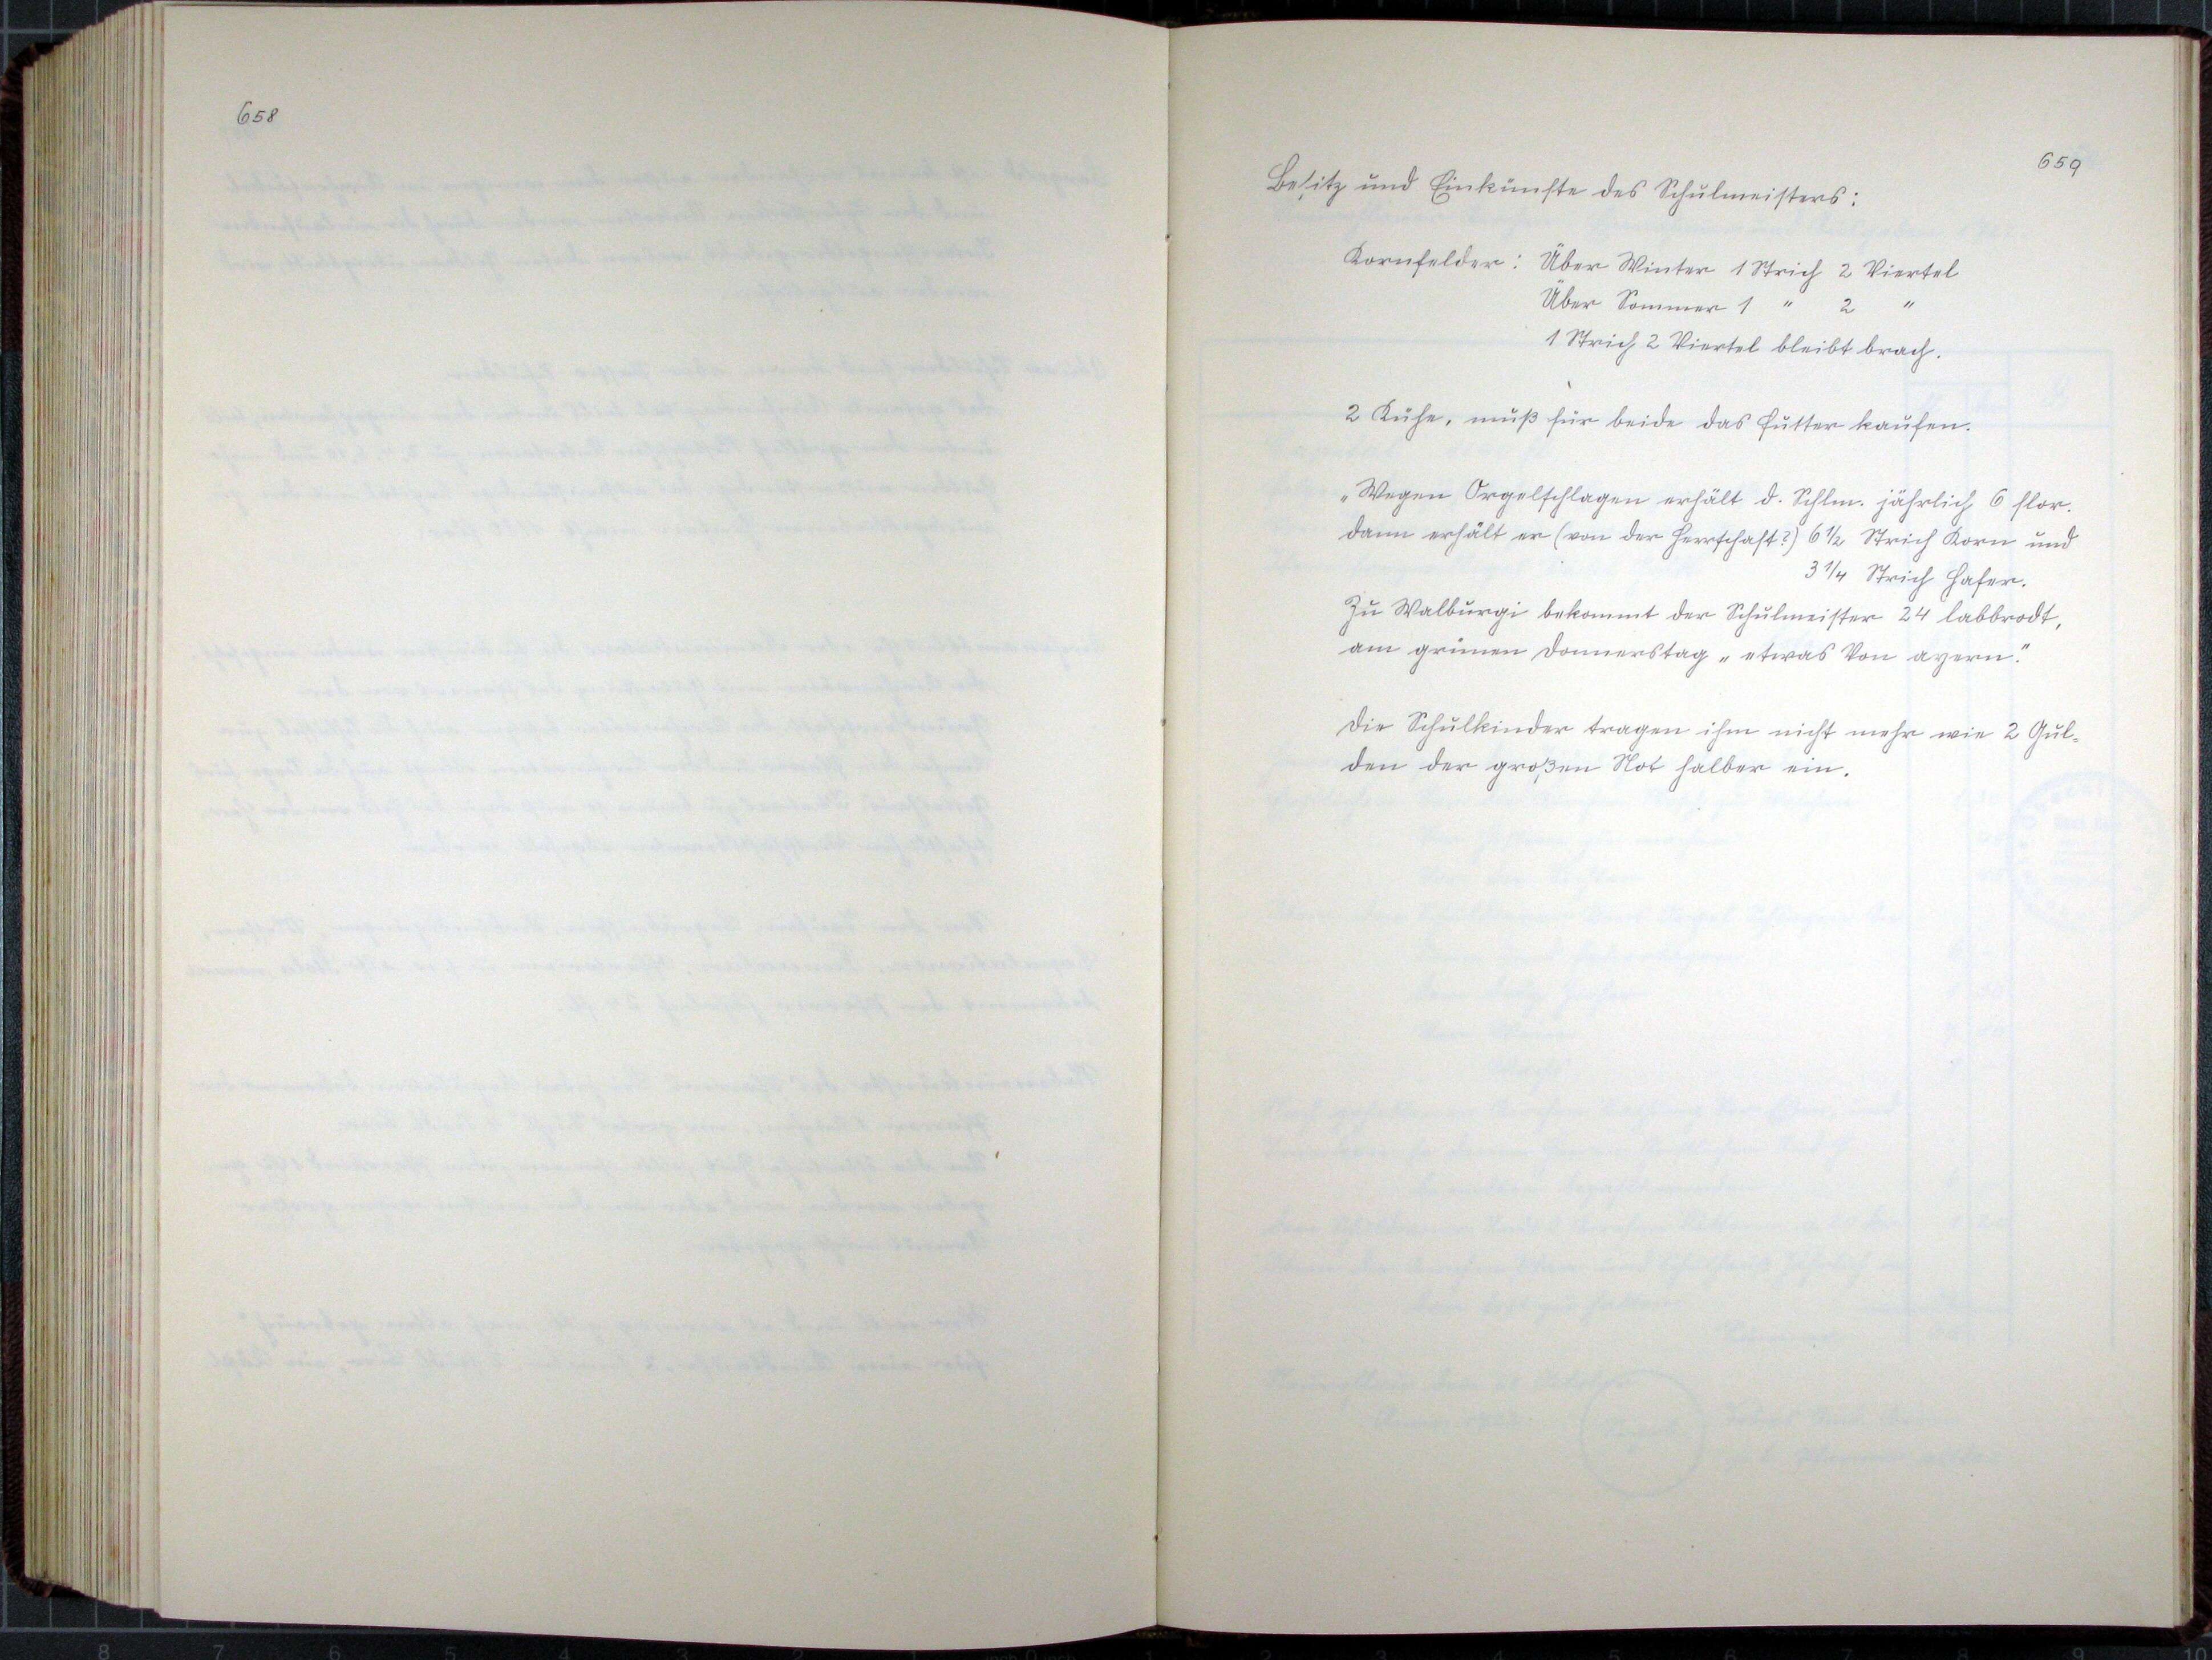 658
659
Besitz und Einkünfte des Schulmeisters:
Kornfelder: Über Winter 1 Strich 2 Viertel
Über Sommer 1 " 2 "
1 Strich 2 Viertel bleibt brach.
2 Kühe, muß für beide das Futter kaufen.
„Wegen Orgelschlagen erhält d. Schlm. jährlich 6 flor.
dann erhält er (von der Herrschaft?) 6 1/2 Strich Korn und
3 1/4 Strich Hafer.
Zu Walburgi bekommt der Schulmeister 24 labbrodt,
am grünen Donnerstag „etwas Von ayern."
Die Schulkinder tragen ihm nicht mehr wie 2 Gul-
den der großen Not halber ein.